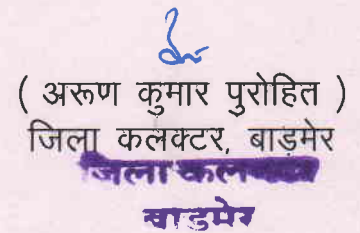 ( अरूण कुमार पुरोहित )
जिला कलक्टर, बाड़मेर
जिला कलक्टर
बाडमेर